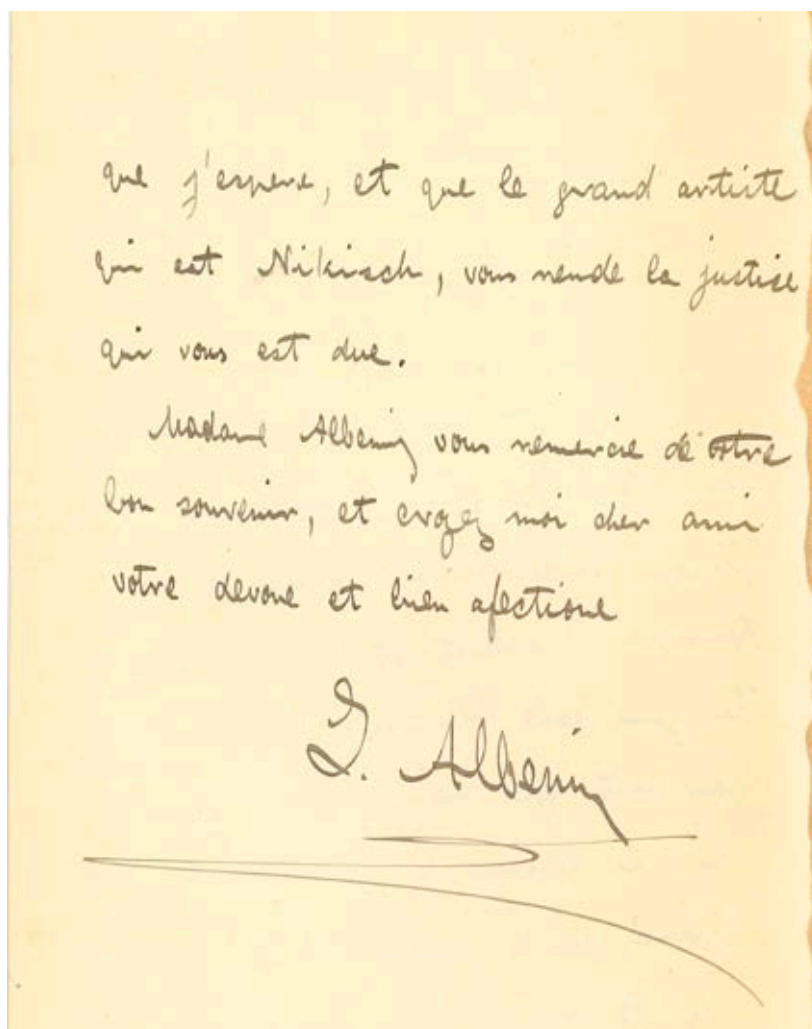 que j'espere, et que le grand artiste
qui est Nikisch, vous rende la justice
qui vous est due.
Madame Albeniz vous remercie de votre
bon souvenir, et croyez moi cher ami
votre devoue et bien afectione
I. Albeniz